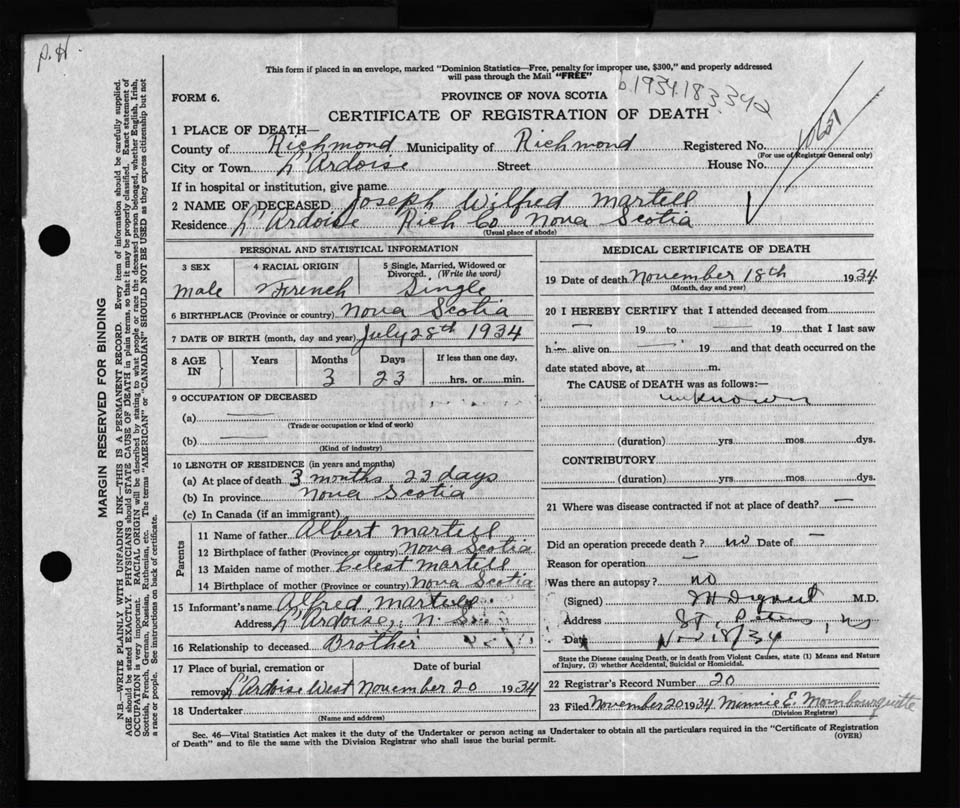 P. H.
This form if placed in an envelope, marked "Dominion Statistics—Free, penalty for improper use, $300," and properly addressed
will pass through the Mail "FREE"
b. 1934 183342
FORM 6.
PROVINCE OF NOVA SCOTIA
CERTIFICATE OF REGISTRATION OF DEATH
1 PLACE OF DEATH—
County of Richmond Municipality of Richmond Registered No.
(For use of Registrar General only)
City or Town L'Ardoise Street House No.
If in hospital or institution, give name
2 NAME OF DECEASED Joseph Wilfred Martell
Residence L'Ardoise Rich Co Nova Scotia
(Usual place of abode)
PERSONAL AND STATISTICAL INFORMATION
3 SEX 4 RACIAL ORIGIN 5 Single, Married, Widowed or
Divorced. (Write the word)
Male French Single
6 BIRTHPLACE (Province or country) Nova Scotia
7 DATE OF BIRTH (month, day and year) July 28th 1934
8 AGE IN Years Months Days If less than one day,
3 23 hrs. or min.
9 OCCUPATION OF DECEASED
(a)
(Trade or occupation or kind of work)
(b)
(Kind of industry)
10 LENGTH OF RESIDENCE (in years and months)
(a) At place of death 3 months 23 days
(b) In province Nova Scotia
(c) In Canada (if an immigrant)
Parents
11 Name of father Albert Martell
12 Birthplace of father (Province or country) Nova Scotia
13 Maiden name of mother Celest Martell
14 Birthplace of mother (Province or country) Nova Scotia
15 Informant's name Alfred Martell
Address L'Ardoise, N. S.
16 Relationship to deceased Brother
17 Place of burial, cremation or Date of burial
removal L'Ardoise West November 20 1934
18 Undertaker
(Name and address)
MEDICAL CERTIFICATE OF DEATH
19 Date of death November 18th 1934
(Month, day and year)
20 I HEREBY CERTIFY that I attended deceased from
— 19 to — 19 that I last saw
h— alive on — 19 and that death occurred on the
date stated above, at m.
The CAUSE of DEATH was as follows:—
unknown
(duration) yrs. mos. dys.
CONTRIBUTORY
(duration) yrs. mos. dys.
21 Where was disease contracted if not at place of death? —
Did an operation precede death? no Date of —
Reason for operation —
Was there an autopsy? no
(Signed) M.D.
Address St. Peters, NS
Date Nov 18/34
State the Disease causing Death, or in death from Violent Causes, state (1) Means and Nature
of Injury, (2) whether Accidental, Suicidal or Homicidal.
22 Registrar's Record Number 20
23 Filed November 20 1934 Minnie E. Mombourquette
(Division Registrar)
Sec. 46—Vital Statistics Act makes it the duty of the Undertaker or person acting as Undertaker to obtain all the particulars required in the "Certificate of Registration
of Death" and to file the same with the Division Registrar who shall issue the burial permit.
(OVER)
MARGIN RESERVED FOR BINDING
N.B.—WRITE PLAINLY WITH UNFADING INK—THIS IS A PERMANENT RECORD. Every item of information should be carefully supplied.
AGE should be stated EXACTLY. PHYSICIANS should STATE CAUSE OF DEATH in plain terms, so that it may be properly classified. Exact statement of
OCCUPATION is very important. RACIAL ORIGIN will be described by stating to what people or race the deceased person belonged, whether English, Irish,
Scottish, French, German, Russian, Ruthenian, etc. The terms "AMERICAN" or "CANADIAN" SHOULD NOT BE USED as they express citizenship but not
a race or people. See instructions on back of certificate.